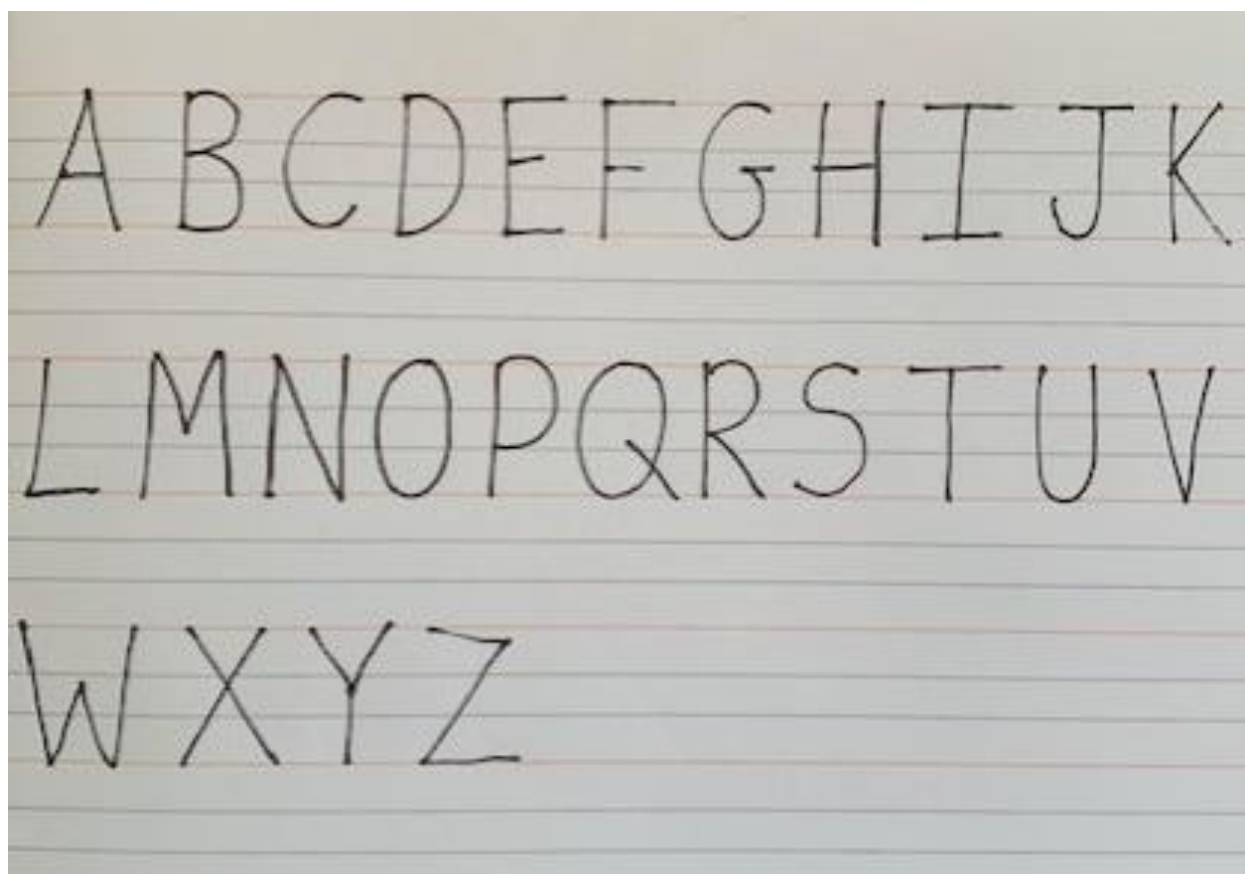 A B C D E F G H I J K
L M N O P Q R S T U V
W X Y Z